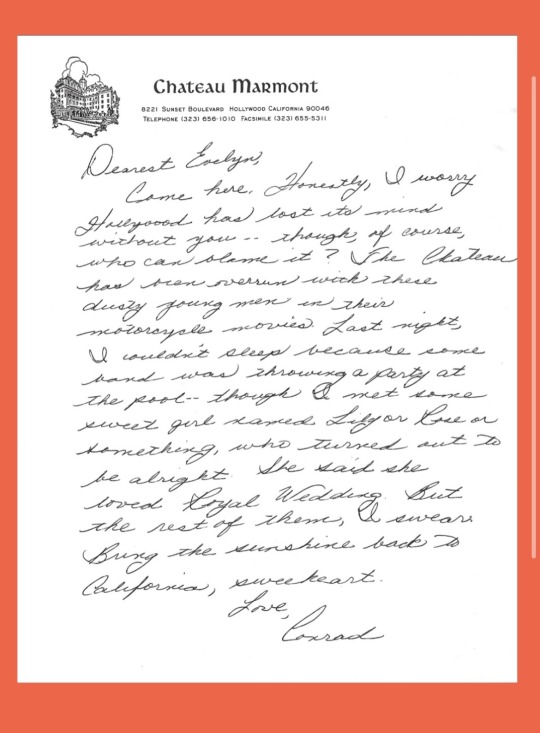 Chateau Marmont
8221 Sunset Boulevard Hollywood California 90046
Telephone (323) 656-1010 Facsimile (323) 655-5311
Dearest Evelyn,
Come here. Honestly, I worry
Hollywood has lost its mind
without you -- though, of course,
who can blame it? The Chateau
has been overrun with these
dusty young men in their
motorcycle movies. Last night,
I couldn't sleep because some
band was throwing a party at
the pool -- though I met some
sweet girl named Lily or Rose or
something, who turned out to
be alright. She said she
loved Royal Wedding. But
the rest of them, I swear.
Bring the sunshine back to
California, sweetheart.
Love,
Conrad